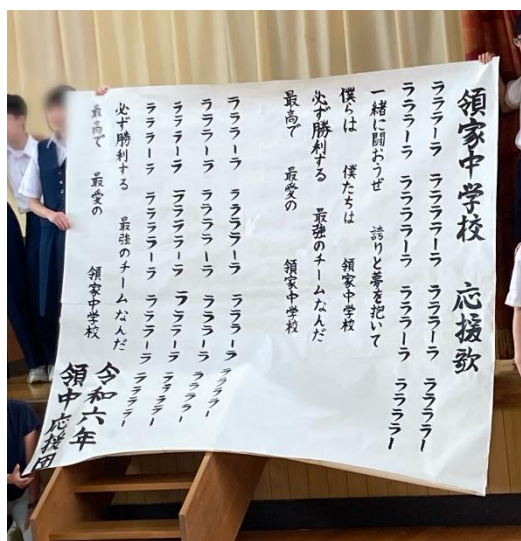 領家中学校 応援歌
ラララーラ ラララララーラ ラララーララ ララララー
ラララーラ ラララララーラ ラララーララ ララララー
一緒に闘おうぜ 誇りと夢を抱いて
僕らは 僕たちは 領家中学校
必ず勝利する 最強のチームなんだ
最高で 最愛の 領家中学校
ラララーラ ラララララーラ ラララーラ ララララー
ラララーラ ラララララーラ ラララーラ ララララー
ラララーラ ラララララーラ ララララーラ ララララー
ラララーラ ラララララーラ ララララーラ ララララー
必ず勝利する 最強のチームなんだ
最高で 最愛の 領家中学校
令和六年
領中応援団